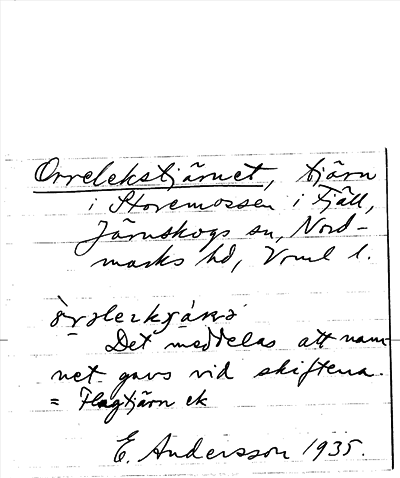 Orrelekstjärnet, tjärn
i Storemossen i Fjäll,
Järnskogs sn, Nord-
marks hd, Vrml l.
Det meddelas att nam-
net gavs vid skiftena.
= Flagtjärn ek
E. Andersson 1935.